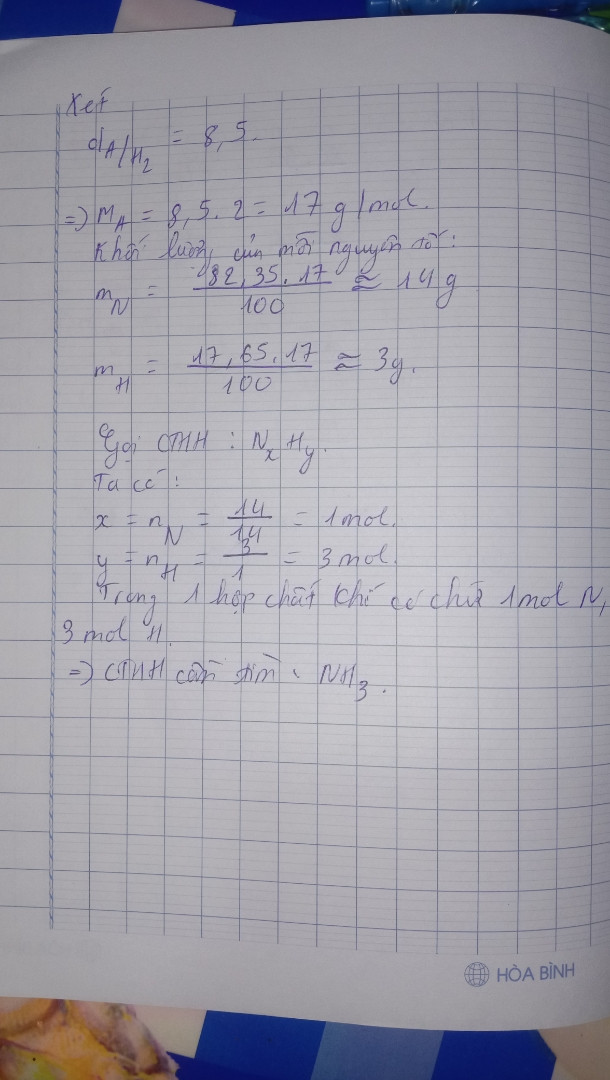 Xét
d A/H2 = 8,5.
=) MA = 8,5.2 = 17 g/mol.
Khối lượng của mỗi nguyên tố:
mN = 82,35.17 / 100 ≈ 14g
mH = 17,65.17 / 100 ≈ 3g.
Gọi CTHH : NxHy.
Ta có:
x = nN = 14 / 14 = 1 mol.
y = nH = 3 / 1 = 3 mol.
Trong 1 hợp chất khí có chứa 1 mol N,
3 mol H.
=) CTHH cần tìm : NH3.
HÒA BÌNH